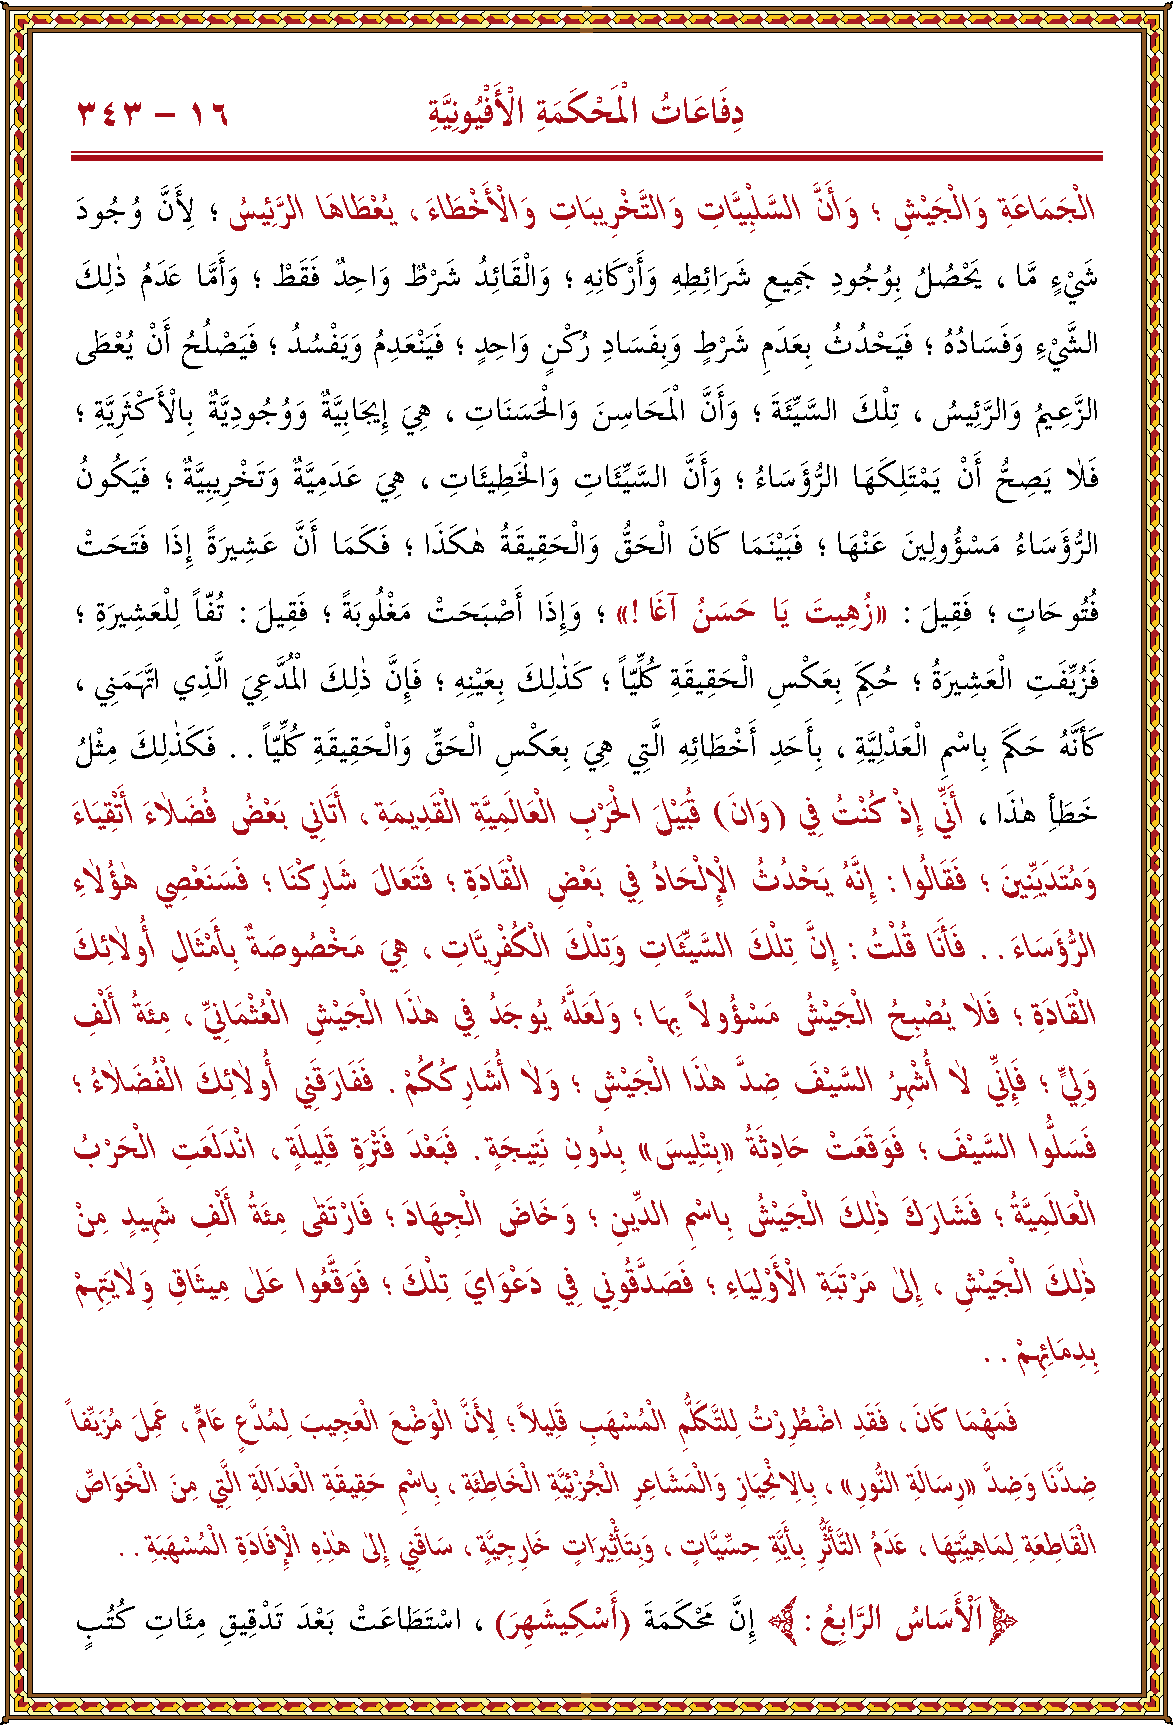 دِفَاعَاتُ الْمَحْكَمَةِ الْأَفْيُونِيَّةِ ١٦ – ٣٤٣
الْجَمَاعَةِ وَالْجَيْشِ ؛ وَأَنَّ السَّلْبِيَّاتِ وَالتَّخْرِيبَاتِ وَالْأَخْطَاءَ ، يُعْطَاهَا الرَّئِيسُ ؛ لِأَنَّ وُجُودَ
شَيْءٍ مَّا ، يَحْصُلُ بِوُجُودِ جَمِيعِ شَرَائِطِهِ وَأَرْكَانِهِ ؛ وَالْقَائِدُ شَرْطٌ وَاحِدٌ فَقَطْ ؛ وَأَمَّا عَدَمُ ذٰلِكَ
الشَّيْءِ وَفَسَادُهُ ؛ فَيَحْدُثُ بِعَدَمِ شَرْطٍ وَبِفَسَادِ رُكْنٍ وَاحِدٍ ؛ فَيَنْعَدِمُ وَيَفْسُدُ ؛ فَيَصْلُحُ أَنْ يُعْطَى
الزَّعِيمُ وَالرَّئِيسُ ، تِلْكَ السَّيِّئَةَ ؛ وَأَنَّ الْمَحَاسِنَ وَالْحَسَنَاتِ ، هِيَ إِيجَابِيَّةٌ وَوُجُودِيَّةٌ بِالْأَكْثَرِيَّةِ ؛
فَلاٰ يَصِحُّ أَنْ يَمْتَلِكَهَا الرُّؤَسَاءُ ؛ وَأَنَّ السَّيِّئَاتِ وَالْخَطِيئَاتِ ، هِيَ عَدَمِيَّةٌ وَتَخْرِيبِيَّةٌ ؛ فَيَكُونُ
الرُّؤَسَاءُ مَسْؤُولِينَ عَنْهَا ؛ فَبَيْنَمَا كَانَ الْحَقُّ وَالْحَقِيقَةُ هٰكَذَا ؛ فَكَمَا أَنَّ عَشِيرَةً إِذَا فَتَحَتْ
فُتُوحَاتٍ ؛ فَقِيلَ : «زُهِيتَ يَا حَسَنُ آغَا !» ؛ وَإِذَا أَصْبَحَتْ مَغْلُوبَةً ؛ فَقِيلَ : تُفّاً لِلْعَشِيرَةِ ؛
فَزُيِّفَتِ الْعَشِيرَةُ ؛ حُكِمَ بِعَكْسِ الْحَقِيقَةِ كُلِّيّاً ؛ كَذٰلِكَ بِعَيْنِهِ ؛ فَإِنَّ ذٰلِكَ الْمُدَّعِيَ الَّذِي اتَّهَمَنِي ،
كَأَنَّهُ حَكَمَ بِاسْمِ الْعَدْلِيَّةِ ، بِأَحَدِ أَخْطَائِهِ الَّتِي هِيَ بِعَكْسِ الْحَقِّ وَالْحَقِيقَةِ كُلِّيّاً . . فَكَذٰلِكَ مِثْلُ
خَطَأِ هٰذَا ، أَنِّي إِذْ كُنْتُ فِي (وَانَ) قُبَيْلَ الْحَرْبِ الْعَالَمِيَّةِ الْقَدِيمَةِ ، أَتَانِي بَعْضُ فُضَلاٰءَ أَتْقِيَاءَ
وَمُتَدَيِّنِينَ ؛ فَقَالُوا : إِنَّهُ يَحْدُثُ الْإِلْحَادُ فِي بَعْضِ الْقَادَةِ ؛ فَتَعَالَ شَارِكْنَا ؛ فَسَنَعْصِي هٰؤُلاٰءِ
الرُّؤَسَاءَ . . فَأَنَا قُلْتُ : إِنَّ تِلْكَ السَّيِّئَاتِ وَتِلْكَ الْكُفْرِيَّاتِ ، هِيَ مَخْصُوصَةٌ بِأَمْثَالِ أُولاٰئِكَ
الْقَادَةِ ؛ فَلاٰ يُصْبِحُ الْجَيْشُ مَسْؤُولاً بِهَا ؛ وَلَعَلَّهُ يُوجَدُ فِي هٰذَا الْجَيْشِ الْعُثْمَانِيِّ ، مِئَةُ أَلْفِ
وَلِيٍّ ؛ فَإِنِّي لاٰ أُشْهِرُ السَّيْفَ ضِدَّ هٰذَا الْجَيْشِ ؛ وَلاٰ أُشَارِكُكُمْ . فَفَارَقَنِي أُولاٰئِكَ الْفُضَلاٰءُ ؛
فَسَلُّوا السَّيْفَ ؛ فَوَقَعَتْ حَادِثَةُ «بِتْلِيسَ» بِدُونِ نَتِيجَةٍ . فَبَعْدَ فَتْرَةٍ قَلِيلَةٍ ، انْدَلَعَتِ الْحَرْبُ
الْعَالَمِيَّةُ ؛ فَشَارَكَ ذٰلِكَ الْجَيْشُ بِاسْمِ الدِّينِ ؛ وَخَاضَ الْجِهَادَ ؛ فَارْتَقٰى مِئَةُ أَلْفِ شَهِيدٍ مِنْ
ذٰلِكَ الْجَيْشِ ، إِلٰى مَرْتَبَةِ الْأَوْلِيَاءِ ؛ فَصَدَّقُونِي فِي دَعْوَايَ تِلْكَ ؛ فَوَقَّعُوا عَلٰى مِيثَاقِ وَلاٰيَتِهِمْ
بِدِمَائِهِمْ . .
فَمَهْمَا كَانَ ، فَقَدِ اضْطُرِرْتُ لِلتَّكَلُّمِ الْمُسْهَبِ قَلِيلاً ؛ لِأَنَّ الْوَضْعَ الْعَجِيبَ لِمُدَّعٍ عَامٍّ ، عَمِلَ مُزَيِّفاً
ضِدَّنَا وَضِدَّ «رِسَالَةِ النُّورِ» ، بِالِانْحِيَازِ وَالْمَشَاعِرِ الْجُزْئِيَّةِ الْخَاطِئَةِ ، بِاسْمِ حَقِيقَةِ الْعَدَالَةِ الَّتِي مِنَ الْخَوَاصِّ
الْقَاطِعَةِ لِمَاهِيَّتِهَا ، عَدَمُ التَّأَثُّرِ بِأَيَّةِ حِسِّيَّاتٍ ، وَبِتَأْثِيرَاتٍ خَارِجِيَّةٍ ، سَاقَنِي إِلٰى هٰذِهِ الْإِفَادَةِ الْمُسْهَبَةِ . .
﴿اَلْأَسَاسُ الرَّابِعُ :﴾ إِنَّ مَحْكَمَةَ (أَسْكِيشَهِرَ) ، اسْتَطَاعَتْ بَعْدَ تَدْقِيقِ مِئَاتِ كُتُبٍ